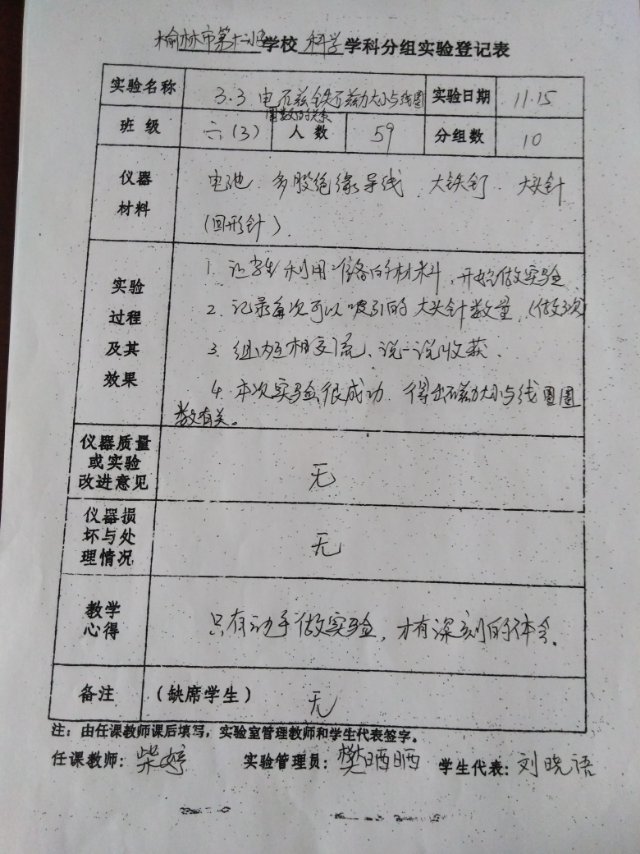 榆林市第十二小学校 科学 学科分组实验登记表
实验名称 3.3 电磁铁磁力大小与线圈圈数的关系 实验日期 11.15
班级 六(3) 人数 59 分组数 10
仪器材料 电池、多股绝缘导线、大铁钉、大头针
(回形针)
实验过程及其效果
1. 让学生利用准备的材料,开始做实验
2. 记录每次可以吸引的大头针数量,(做3次)
3. 组内互相交流、说一说收获.
4. 本次实验很成功,得出磁力大小与线圈圈
数有关。
仪器质量或实验改进意见 无
仪器损坏与处理情况 无
教学心得 只有动手做实验,才有深刻的体会。
备注 (缺席学生) 无
注:由任课教师课后填写,实验室管理教师和学生代表签字。
任课教师:柴婷 实验管理员:樊晒晒 学生代表:刘晓语